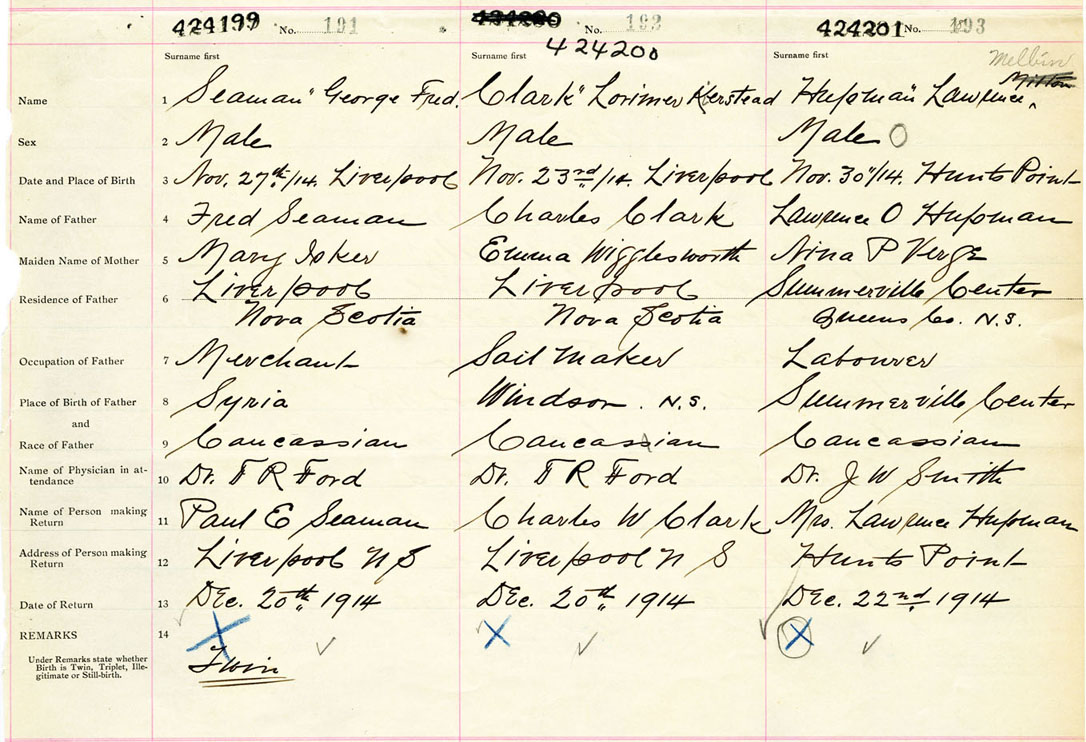 424199 No. 191 424200 No. 193 424201 No. 193
424200
Surname first Surname first Surname first Melbin
Mitton
Name 1 Seaman" George Fred. Clark" Lorimer Kerstead Hupman" Lawrence
Sex 2 Male Male Male O
Date and Place of Birth 3 Nov. 27th/14. Liverpool Nov. 23rd/14. Liverpool Nov. 30"/14. Hunts Point
Name of Father 4 Fred Seaman Charles Clark Lawrence O Hupman
Maiden Name of Mother 5 Mary Isker Emma Wigglesworth Nina P Verge
Residence of Father 6 Liverpool Liverpool Summerville Center
Nova Scotia Nova Scotia Queens Co. N.S.
Occupation of Father 7 Merchant Sail Maker Labourer
Place of Birth of Father 8 Syria Windsor. N.S. Summerville Center
and
Race of Father 9 Caucassian Caucassian Caucassian
Name of Physician in at-
tendance 10 Dr. T R Ford Dr. T R Ford Dr. J W Smith
Name of Person making
Return 11 Paul E Seaman Charles W Clark Mrs. Lawrence Hupman
Address of Person making
Return 12 Liverpool N S Liverpool N S Hunts Point
Date of Return 13 Dec. 20th 1914 Dec. 20th 1914 Dec. 22nd 1914
REMARKS 14 X X X
Under Remarks state whether
Birth is Twin, Triplet, Ille-
gitimate or Still-birth.
Twin